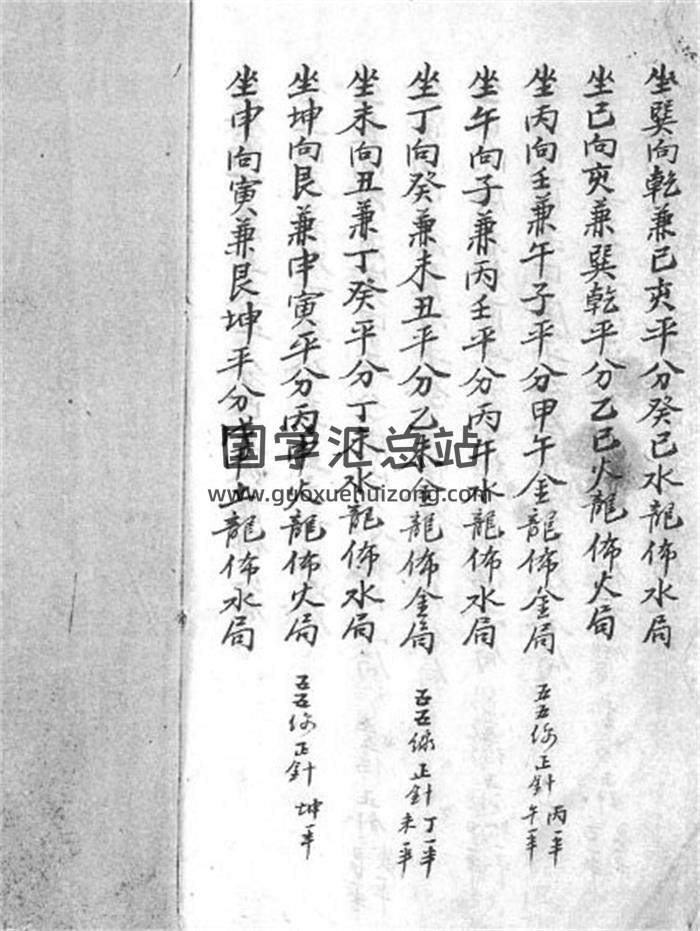 坐巽向乾兼巳亥平分癸巳水龍佈水局
坐巳向亥兼巽乾平分乙巳火龍佈火局
坐丙向壬兼午子平分甲午金龍佈金局
五五線正針丙一半午一半
坐午向子兼丙壬平分丙午水龍佈水局
坐丁向癸兼未丑平分乙未金龍佈金局
五五線正針丁一半未一半
坐未向丑兼丁癸平分丁未水龍佈水局
坐坤向艮兼申寅平分丙申火龍佈火局
五五線正針坤一半
坐申向寅兼艮坤平分申土龍佈水局
国学汇总站
www.guoxuehuizong.com